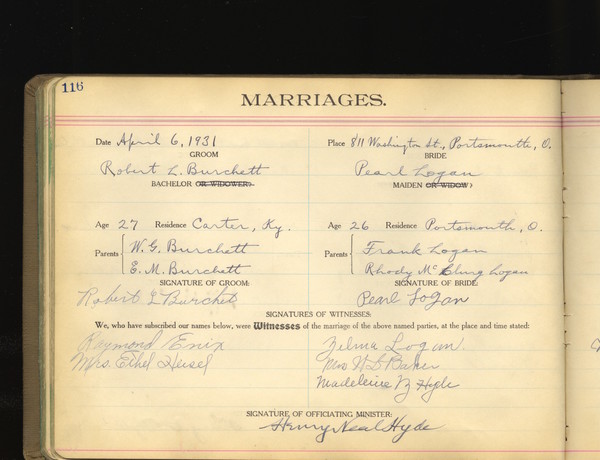 116
MARRIAGES.
Date April 6, 1931 Place 811 Washington St., Portsmouth, O.
GROOM BRIDE
Robert L. Burchett Pearl Logan
BACHELOR OR WIDOWER. MAIDEN OR WIDOW.
Age 27 Residence Carter, Ky. Age 26 Residence Portsmouth, O.
Parents W. G. Burchett Frank Logan
E. M. Burchett Parents Rhody McClung Logan
SIGNATURE OF GROOM: SIGNATURE OF BRIDE:
Robert L Burchet Pearl Logan
SIGNATURES OF WITNESSES:
We, who have subscribed our names below, were Witnesses of the marriage of the above named parties, at the place and time stated:
Raymond Enix Zelma Logan.
Mrs. Ethel Heisel Mrs W L Baker
Madeleine Hyde
SIGNATURE OF OFFICIATING MINISTER:
Henry Neal Hyde